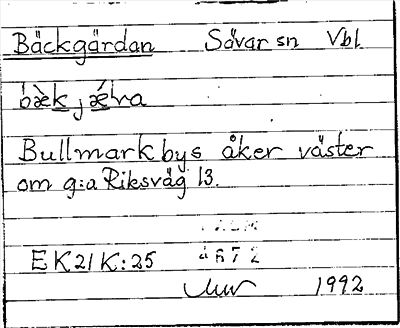 Bäckgärdan Sävar sn Vbl
Bullmark bys åker väster
om g:a Riksväg 13.
EK 21 K:25 4672
1992